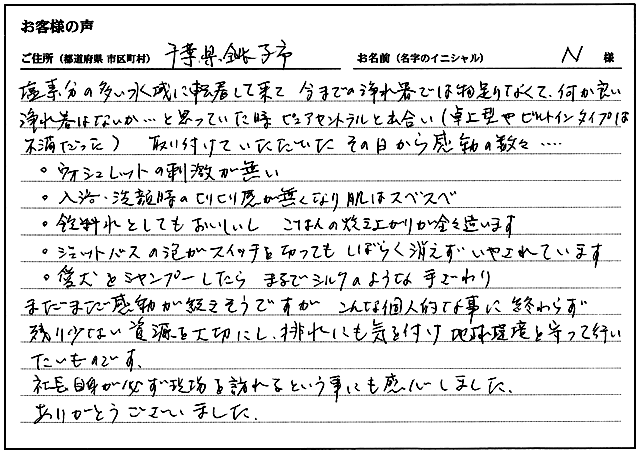 お客様の声
ご住所（都道府県 市区町村） 千葉県銚子市 お名前（名字のイニシャル） N 様
塩素分の多い水域に転居して来て 今までの浄水器では物足りなくて、何か良い
浄水器はないか…と思っていた時 ピュアセントラルと出合い（卓上型やビルトインタイプは
不満だった） 取り付けていただいた その日から感動の数々‥‥
・ウォシュレットの刺激が無い
・入浴・洗顔時のヒリヒリ感が無くなり肌はスベスベ
・飲料水としてもおいしいし ごはんの炊き上がりが全々違います
・ジェットバスの泡がスイッチを切ってもしばらく消えずいやされています
・愛犬をシャンプーしたら まるでシルクのような手ざわり
まだまだ感動が続きそうですが こんな個人的な事に終わらず
残り少ない資源を大切にし、排水にも気を付け地球環境を守って行い
たいものです。
社長自身が必ず現場を訪れるという事にも感心しました。
ありがとうございました。